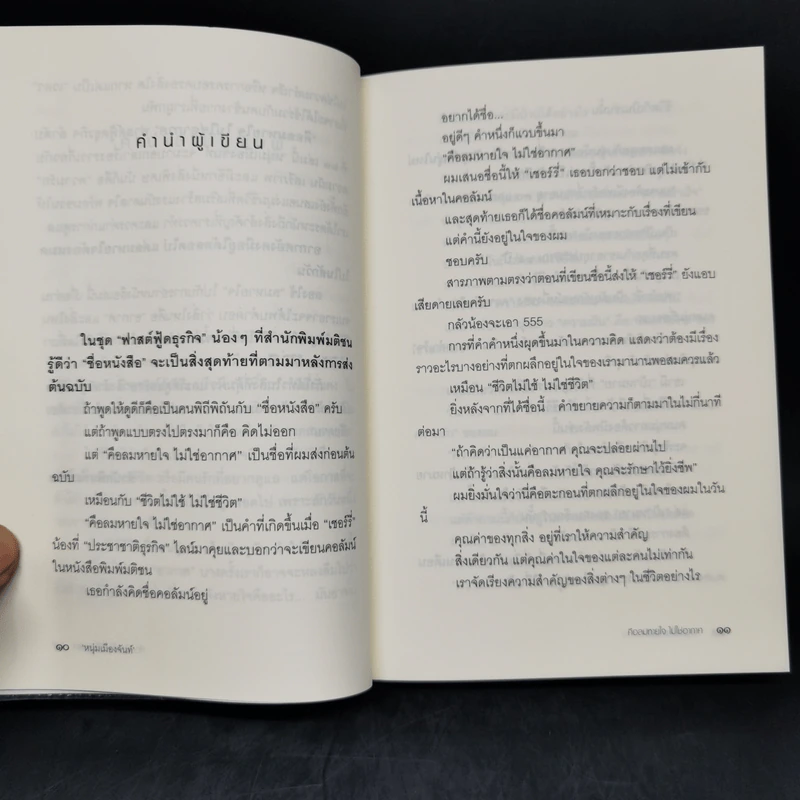 คำนำผู้เขียน
ในชุด "ฟาสต์ฟู้ดธุรกิจ" น้องๆ ที่สำนักพิมพ์มติชน
รู้ดีว่า "ชื่อหนังสือ" จะเป็นสิ่งสุดท้ายที่ตามมาหลังการส่ง
ต้นฉบับ
ถ้าพูดให้ดูดีก็คือเป็นคนพิถีพิถันกับ "ชื่อหนังสือ" ครับ
แต่ถ้าพูดแบบตรงไปตรงมาก็คือ คิดไม่ออก
แต่ "คือลมหายใจ ไม่ใช่อากาศ" เป็นชื่อที่ผมส่งก่อนต้น
ฉบับ
เหมือนกับ "ชีวิตไม่ใช้ ไม่ใช่ชีวิต"
"คือลมหายใจ ไม่ใช่อากาศ" เป็นคำที่เกิดขึ้นเมื่อ "เชอร์รี่"
น้องที่ "ประชาชาติธุรกิจ" ไลน์มาคุยและบอกว่าจะเขียนคอลัมน์
ในหนังสือพิมพ์มติชน
เธอกำลังคิดชื่อคอลัมน์อยู่
๑๐ 'หนุ่มเมืองจันท์'
อยากได้ชื่อ...
อยู่ดีๆ คำหนึ่งก็แวบขึ้นมา
"คือลมหายใจ ไม่ใช่อากาศ"
ผมเสนอชื่อนี้ให้ "เชอร์รี่" เธอบอกว่าชอบ แต่ไม่เข้ากับ
เนื้อหาในคอลัมน์
และสุดท้ายเธอก็ได้ชื่อคอลัมน์ที่เหมาะกับเรื่องที่เขียน
แต่คำนี้ยังอยู่ในใจของผม
ชอบครับ
สารภาพตามตรงว่าตอนที่เขียนชื่อนี้ส่งให้ "เชอร์รี่" ยังแอบ
เสียดายเลยครับ
กลัวน้องจะเอา 555
การที่คำคำหนึ่งผุดขึ้นมาในความคิด แสดงว่าต้องมีเรื่อง
ราวอะไรบางอย่างที่ตกผลึกอยู่ในใจของเรามานานพอสมควรแล้ว
เหมือน "ชีวิตไม่ใช้ ไม่ใช่ชีวิต"
ยิ่งหลังจากที่ได้ชื่อนี้ คำขยายความก็ตามมาในไม่กี่นาที
ต่อมา
"ถ้าคิดว่าเป็นแค่อากาศ คุณจะปล่อยผ่านไป
แต่ถ้ารู้ว่าสิ่งนั้นคือลมหายใจ คุณจะรักษาไว้ยิ่งชีพ"
ผมยิ่งมั่นใจว่านี่คือตะกอนที่ตกผลึกอยู่ในใจของผมในวัน
นี้
คุณค่าของทุกสิ่ง อยู่ที่เราให้ความสำคัญ
สิ่งเดียวกัน แต่คุณค่าในใจของแต่ละคนไม่เท่ากัน
เราจัดเรียงความสำคัญของสิ่งต่างๆ ในชีวิตอย่างไร
คือลมหายใจ ไม่ใช่อากาศ ๑๑